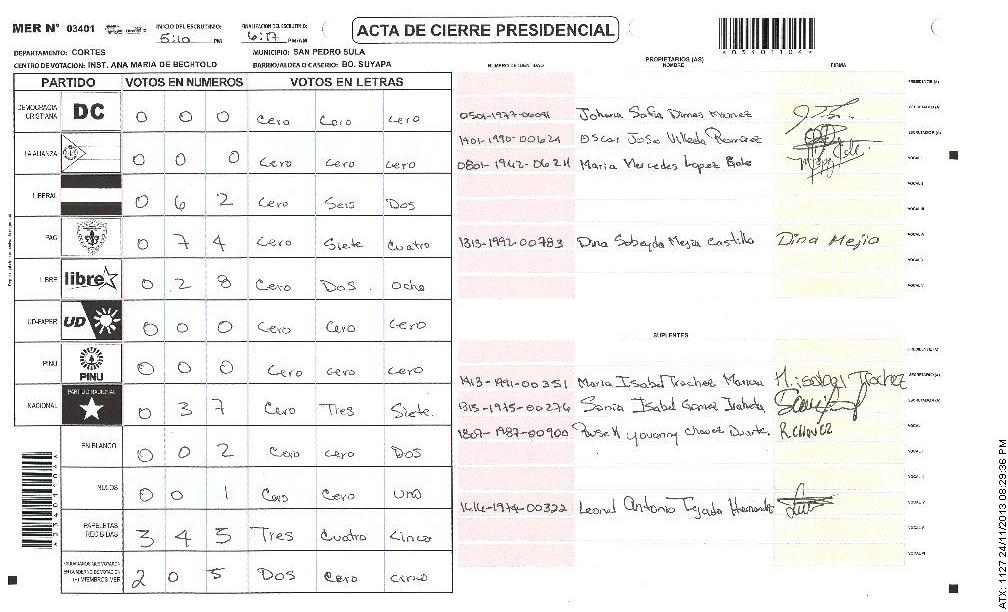 MER N° 03401
INICIO DEL ESCRUTINIO: 5:10 PM
FINALIZACION DEL ESCRUTINIO: 6:17 PM/AM
ACTA DE CIERRE PRESIDENCIAL
DEPARTAMENTO: CORTES
MUNICIPIO: SAN PEDRO SULA
CENTRO DE VOTACION: INST. ANA MARIA DE BECHTOLD
BARRIO/ALDEA O CASERIO: BO. SUYAPA
PARTIDO VOTOS EN NUMEROS VOTOS EN LETRAS
DEMOCRACIA CRISTIANA DC 0 0 0 Cero Cero Cero
LA ALIANZA 0 0 0 Cero Cero Cero
LIBERAL 0 6 2 Cero Seis Dos
PAC 0 7 4 Cero Siete Cuatro
LIBRE libre 0 2 8 Cero Dos Ocho
UD-FAPER UD 0 0 0 Cero Cero Cero
PINU PINU 0 0 0 Cero Cero Cero
NACIONAL PARTIDO NACIONAL 0 3 7 Cero Tres Siete.
EN BLANCO 0 0 2 Cero Cero Dos
NULOS 0 0 1 Cero Cero uno
PAPELETAS RECIBIDAS 3 4 5 Tres Cuatro Cinco
CIUDADANOS QUE VOTARON EN CUADERNO DE VOTACION (+) MIEMBROS MER 2 0 5 Dos Cero cinco
PROPIETARIOS (AS)
NUMERO DE IDENTIDAD NOMBRE FIRMA
PRESIDENTE (A)
0501-1977-06091 Johana Sofia SECRETARIO (A)
1401-1990-00624 Oscar Jose Villeda Ramirez ESCRUTADOR (A)
0801-1942-06211 Maria Mercedes Lopez VOCAL I
VOCAL II
VOCAL III
1313-1992-00783 Dina Sobeyda Mejia Castillo Dina Mejia VOCAL IV
VOCAL V
VOCAL VI
SUPLENTES
PRESIDENTE (A)
1413-1991-00351 Maria Isabel Trochez M. isabel Trochez SECRETARIO (A)
1315-1975-00276 Sonia Isabel Gomez ESCRUTADOR (A)
1807-1987-00900 Yovanny Chavez Duarte. R CHAVEZ VOCAL I
VOCAL II
VOCAL III
1414-1974-00322 Leonel Antonio Tejada Hernandez VOCAL IV
VOCAL V
VOCAL VI
ATX: 1127 24/11/2013 08:29:36 PM